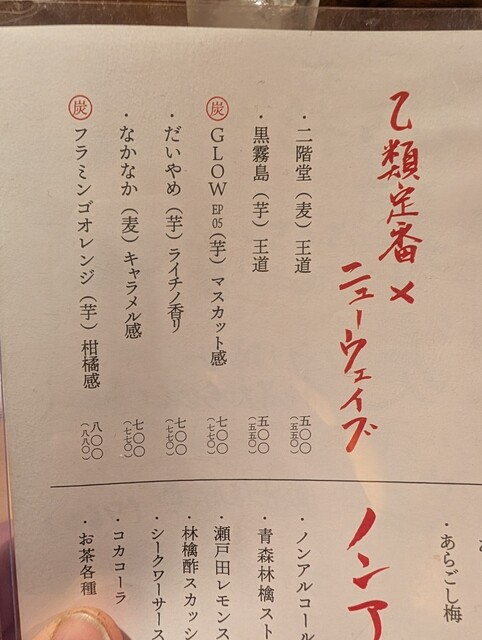 乙類定番×
ニューウェイブ
・二階堂（麦）王道 五〇〇（五五〇）
・黒霧島（芋）王道 五〇〇（五五〇）
炭 GLOW EP05（芋）マスカット感 七〇〇（七七〇）
・だいやめ（芋）ライチノ香リ 七〇〇（七七〇）
・なかなか（麦）キャラメル感 七〇〇（七七〇）
炭 フラミンゴオレンジ（芋）柑橘感 八〇〇（八八〇）
・あらごし梅
ノンア
・ノンアルコール
・青森林檎スト
・瀬戸田レモンス
・林檎酢スカッシ
・シークワーサース
・コカコーラ
・お茶各種